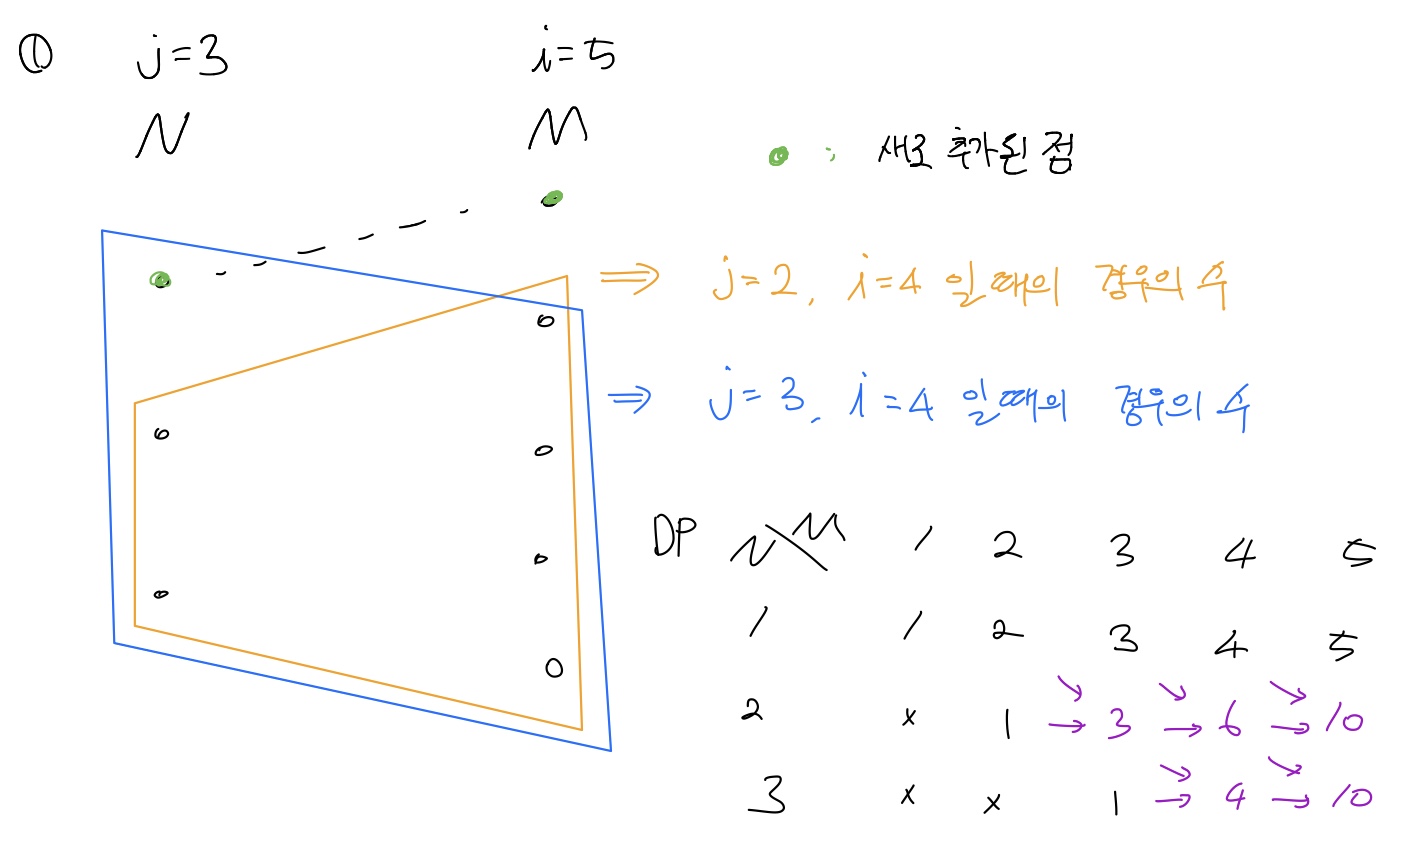 ① j=3 i=5
N M
: 새로 추가된 점
⇒ j=2, i=4 일때의 경우의 수
⇒ j=3, i=4 일때의 경우의 수
DP N\M 1 2 3 4 5
1 1 2 3 4 5
2 x 1 → 3 → 6 → 10
3 x x 1 → 4 → 10